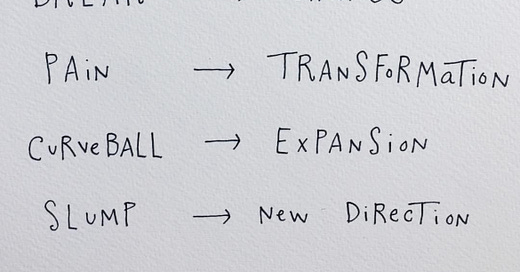 PAiN → TRANSFoRMaTioN
CuRveBALL → ExPANSioN
SLuMP → New DiRecTioN